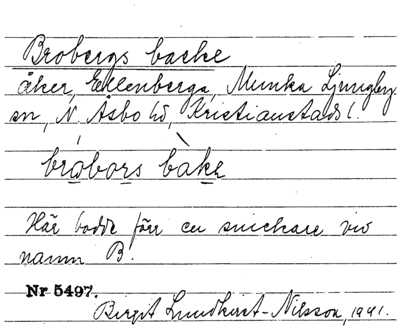 Brobergs backe
åker, Ellenberga, Munka Ljungby
sn, N. Åsbo hd, Kristianstads l.
bro̱bo̱rs ba̱ḵe
Här bodde förr en snickare vid
namn B.
Nr 5497.
Birgit Lundkvist-Nilsson, 1941.